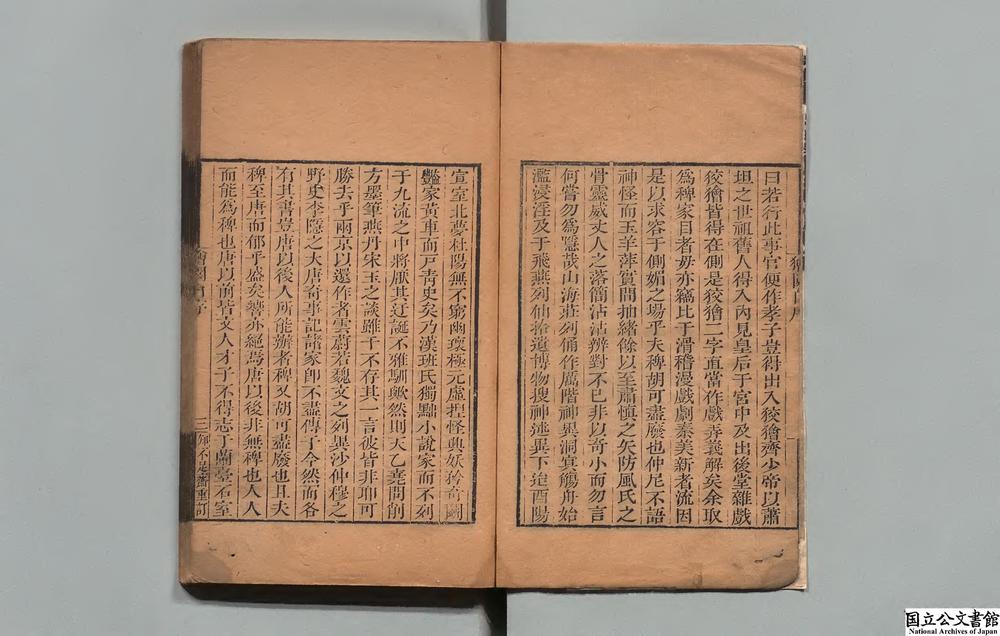 曰若行此事官便作孝子豈得出入狡獪齊少帝以蕭
坦之世祖舊人得入內見皇后于宮中及出後堂雜戲
狡獪皆得在側是狡獪二字直當作戲弄義解矣余取
為稗家目者毋亦竊比于滑稽漫戲劇秦美新者流因
是以求容于側媚之場乎夫稗胡可盡廢也仲尼不語
神怪而玉羊萍實間抽緒餘以至肅慎之矢防風氏之
骨靈威丈人之落簡沾沾辨對不巳非以奇小而勿言
何嘗勿為鑿哉山海莊列俑作厲階神異洞冥觴舟始
濫浸淫及于飛燕列仙拾遺博物搜神述異下迨酉陽
獪園自序
宣室北夢杜陽無不窮幽極元虛捏怪典妖矜奇鬭
豔家黃車而戸青史矣乃漢班氏獨黜小說家而不列
于九流之中將厭其迂誕不雅馴歟然則天乙堯問削
方墨筆燕丹宋玉之談雖千不存其一言彼皆非聊可
勝去乎兩京以還作者雲蔚若魏文之列異沙仲穆之
野史李隱之大唐奇事記諸家卽不盡傳于今然而各
有其書豈唐以後人所能辦者稗又胡可盡廢也且夫
稗至唐而郁乎盛矣響亦絕焉唐以後非無稗也人人
而能為稗也唐以前皆文人才子不得志于蘭臺石室
獪園自序
三
知不足齋重訂
国立公文書館
National Archives of Japan